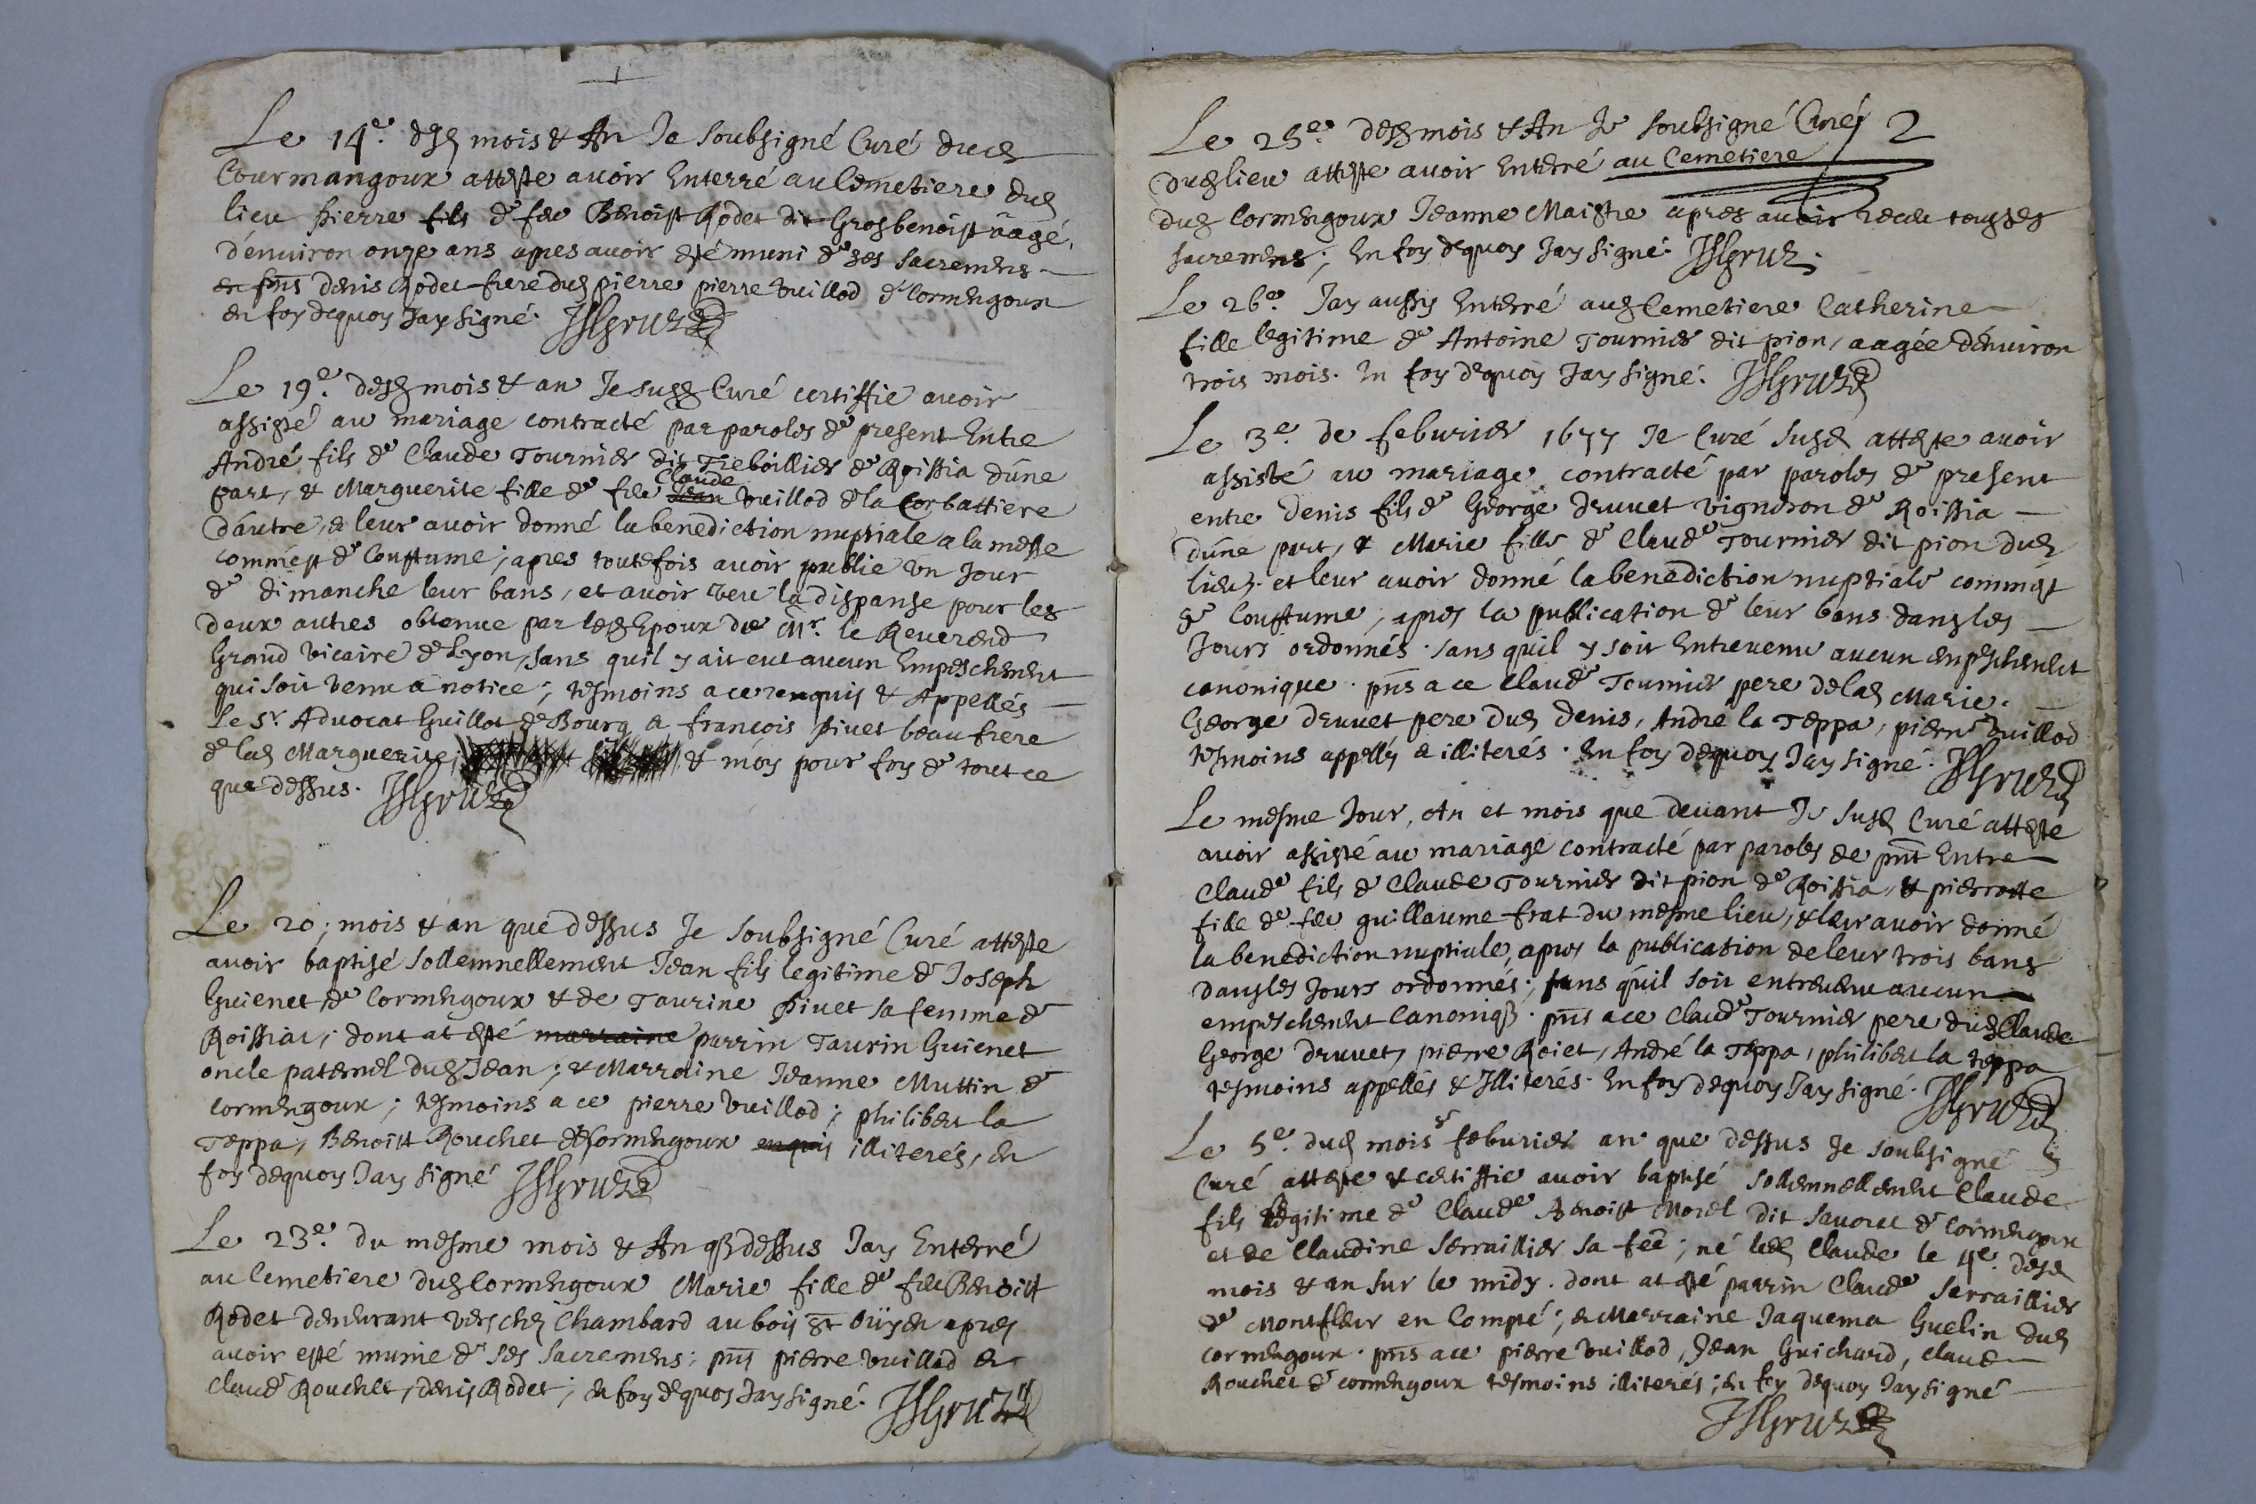 Le 14e. desd mois & An Je soubsigné Curé dud
Courmangoux atteste avoir Enterré au Cemetiere dud
lieu pierre fils de feu Benoist Rodet dit Grosbenoist aagé
d'environ onze ans apres avoir esté muni de ses sacremens
en pns denis Rodet frere dud pierre pierre vuillod de Cormengoux
en foy dequoy Jay signé.
Le 19e. desd mois & an Je susd Curé certiffie avoir
assisté au mariage contracté par paroles de present Entre
André fils de Claude Tournier dit Treboillier de Roissia d'une
part, & Marguerite fille de feu Jean Claude vuillod de la Corbattiere
d'autre, & leur avoir donné la benediction nuptiale a la messe
comm'est de Coustume; apres toutefois avoir publié un Jour
de dimanche leur bans, et avoir veu la dispanse pour les
deux autres obtenue par lesd Epoux de Mr. le Reverend
Grand vicaire de Lyon, sans quil y ait eut aucun Empeschement
qui soit venu a notice; tesmoins a ce requis & Appellés
le Sr. Advocat Guillot de Bourg & françois pivet beau frere
de lad Marguerite; & moy pour foy de tout ce
que dessus.
Le 20; mois & an que dessus Je soubsigné Curé atteste
avoir baptisé sollemnellement Jean fils legitime de Joseph
Guienet de Cormengoux & de Taurine pivet sa femme de
Roissiat; dont at esté marraine parrin Taurin Guienet
oncle paternel dud Jean; & Marraine Jeanne Muttin de
Cormengoux; tesmoins a ce pierre vuillod; philibert la
Teppa, Benoist Rouchet de Cormengoux enquis illiterés, en
foy dequoy Jay signé
Le 23e. du mesme mois & An q dessus Jay Enterré
au Cemetiere dud Cormengoux Marie fille de feu Benoist
Rodet demeurant vers chez Chambard au bois St Oüyen apres
avoir esté munie de ses sacremens; pns pierre vuillod &
Claude Rouchet, denis Rodet; en foy dequoy Jay signé.
Le 25e. desd mois & An Je soubsigné Curé 2
dud lieu atteste avoir Enterré au Cemetiere
dud Cormengoux Jeanne Maistre apres avoir receu tous ses
sacremens; En foy dequoy Jay signé.
Le 26e. Jay aussy Enterré aud Cemetiere Catherine
fille legitime de Antoine Tournier dit pion, aagée d'environ
trois mois. En foy dequoy Jay signé.
Le 3e. de feburier 1677 Je Curé susd atteste avoir
assisté au mariage contracté par paroles de present
entre denis fils de George druvet vigneron de Roissia
d'une part, & Marie fille de Claude Tournier dit pion dud
lieu. et leur avoir donné la benediction nuptiale comm'est
de Coustume, apres la publication de leur bans dans les
Jours ordonnés. sans quil y soit Entrevenu aucun enpeschement
canonique. pns a ce Claude Tournier pere de lad Marie.
George druvet pere dud denis, André la Teppa, pierre vuillod
tesmoins appellés & illiterés. En foy dequoy Jay signé.
Le mesme Jour, An et mois que devant Je susd Curé atteste
avoir assisté au mariage contracté par paroles de pnt Entre
Claude fils de Claude Tournier dit pion de Roissia, & pierrotte
fille de feu guillaume frat du mesme lieu, & leur avoir donné
la benediction nuptiale, apres la publication de leur trois bans
dans les Jours ordonnés; sans quil soit entrevenu aucun
empeschement Canoniq. pns a ce Claude Tournier pere dud Claude
George druvet, pierre Roiet, André la Teppa, philibert la teppa
tesmoins appellés & Illiterés. En foy dequoy Jay signé.
Le 5e. dud mois de feburier an que dessus Je soubsigné
Curé atteste & certiffie avoir baptisé sollemnellement Claude
fils legitime de Claude Benoist Morel dit Savoret de Cormengoux
et de Claudine Serraillier sa feē; né led Claude le 4e. desd
mois & an sur le midy. dont at esté parrin Claude Serraillier
de Montfleur en Compté; & Marraine Jaquema Guelin dud
cormengoux. pns a ce pierre vuillod, Jean Guichard, Claude
Rouchet de cormengoux tesmoins illiterés; en foy dequoy Jay signé